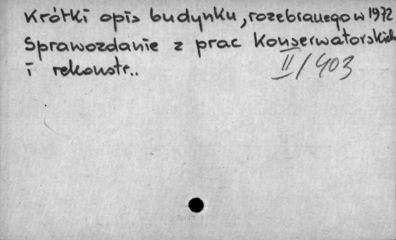 Krótki opis budynku, rozebranego w 1972
Sprawozdanie z prac konserwatorskich
i rekonstr..
II/403